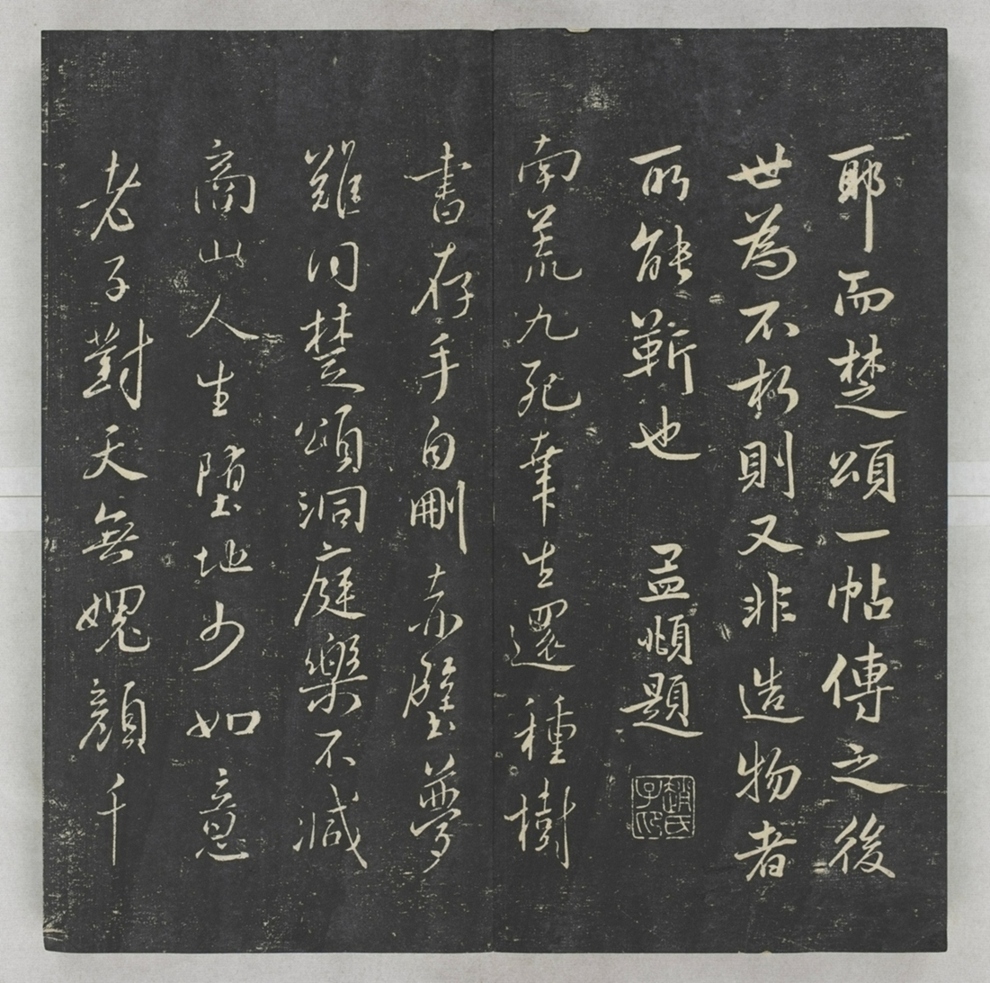 耶而楚頌一帖傳之後
世為不朽則又非造物者
所能靳也 孟頫題
趙氏子昂
南荒九死幸生還種樹
書存手自刪赤壁夢
難同楚頌洞庭樂不減
商山人生墮地少如意
老子對天無媿顏千